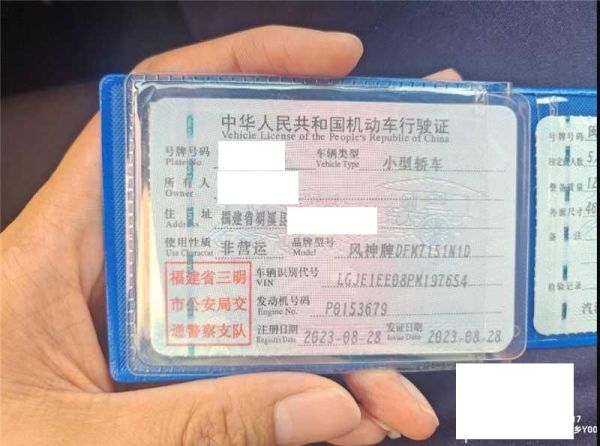 中华人民共和国机动车行驶证
Vehicle License of the People's Republic of China
号牌号码
Plate No.
车辆类型 小型轿车
Vehicle Type
所有人
Owner
住址 福建省明溪县
Address
使用性质 非营运 品牌型号 风神牌DFM7151N1D
Use Character Model
福建省三明
市公安局交
通警察支队
车辆识别代号 LGJE1EE08PM197654
VIN
发动机号码 P0153679
Engine No.
注册日期 2023-08-28 发证日期 2023-08-28
Register Date Issue Date
号牌号码
整备质量
外廓尺寸
备注
检验记录